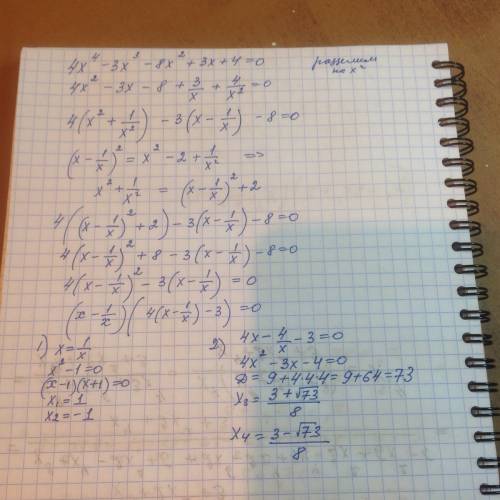 4x⁴ - 3x³ - 8x² + 3x + 4 = 0
разделим
на x²
4x² - 3x - 8 + 3/x + 4/x² = 0
4(x² + 1/x²) - 3(x - 1/x) - 8 = 0
(x - 1/x)² = x² - 2 + 1/x² =>
x² + 1/x² = (x - 1/x)² + 2
4((x - 1/x)² + 2) - 3(x - 1/x) - 8 = 0
4(x - 1/x)² + 8 - 3(x - 1/x) - 8 = 0
4(x - 1/x)² - 3(x - 1/x) = 0
(x - 1/x)(4(x - 1/x) - 3) = 0
1) x = 1/x
x² - 1 = 0
(x - 1)(x + 1) = 0
x₁ = 1
x₂ = -1
2) 4x - 4/x - 3 = 0
4x² - 3x - 4 = 0
D = 9 + 4·4·4 = 9 + 64 = 73
x₃ = (3 + √73)/8
x₄ = (3 - √73)/8